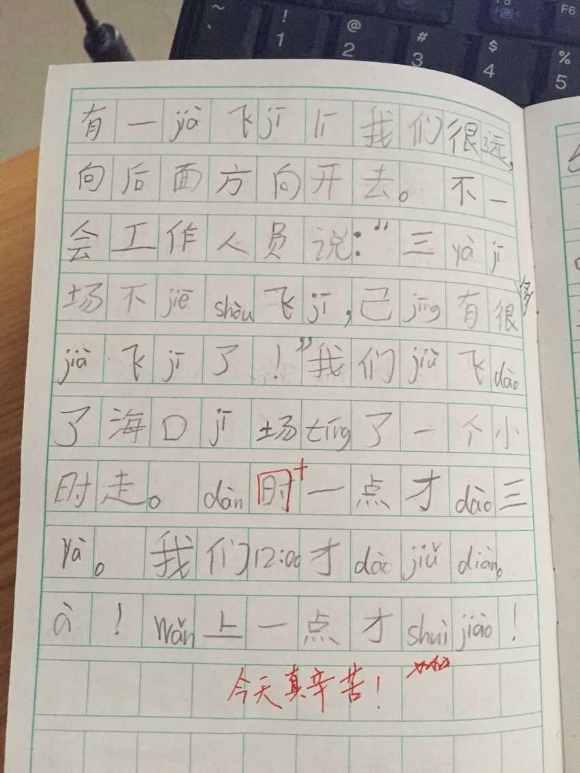 ~ ! @ # $ % F5 F6
1 2 3 4 5
有一jià飞jī lí我们很远,
向后面方向开去。不一
会工作人员说:“三yà jī
场不jiē shòu飞jī,已jīng有很多
jià飞jī了!”我们jiù飞dào
了海口jī场tíng了一个小
时走。dàn时一点才dào三
yà。我们12:00才dào jiǔ diàn。
à!wǎn上一点才shuì jiào!
今天真辛苦!